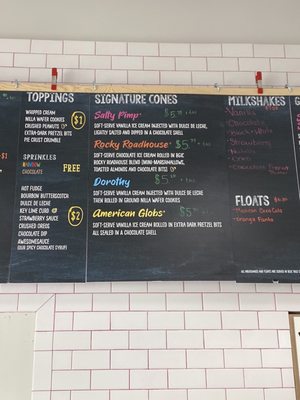 TOPPINGS
WHIPPED CREAM
NILLA WAFER COOKIES
CRUSHED PEANUTS
EXTRA-DARK PRETZEL BITS
PIE CRUST FREAKLES
$1
SPRINKLES
RAINBOW
CHOCOLATE
FREE
HOT FUDGE
BOURBON BUTTERSCOTCH
DULCE DE LECHE
KEY LIME CURD
STRAWBERRY SAUCE
CRUSHED OREOS
CHOCOLATE DIP
AWESOMESAUCE
OUR SPICY CHOCOLATE SYRUP!
$2
SIGNATURE CONES
Salty Pimp
SOFT-SERVE VANILLA ICE CREAM INJECTED WITH DULCE DE LECHE,
LIGHTLY SALTED AND DIPPED IN A CHOCOLATE SHELL
Rocky Roadhouse $5
SOFT-SERVE CHOCOLATE ICE CREAM ROLLED IN BGIC
ROCKY ROADHOUSE BLEND (MINI-MARSHMALLOWS,
TOASTED ALMONDS AND CHOCOLATE BITS)
Dorothy $5
SOFT-SERVE VANILLA ICE CREAM INJECTED WITH DULCE DE LECHE
THEN ROLLED IN GROUND NILLA WAFER COOKIES
American Globs $5
SOFT-SERVE VANILLA ICE CREAM ROLLED IN EXTRA DARK PRETZEL BITS
ALL SEALED IN A CHOCOLATE SHELL
MILKSHAKES
Vanilla
Chocolate
Black + White
Strawberry
Nutella
Oreo
FLOATS
Mexican Coca Cola
Orange Fanta